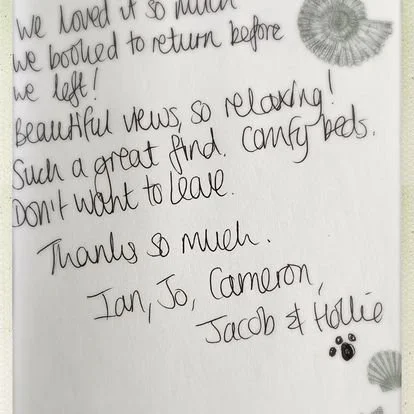 We loved it so much
we booked to return before
we left!
Beautiful views, so relaxing!
Such a great find. Comfy beds.
Don't want to leave.
Thanks so much.
Ian, Jo, Cameron,
Jacob & Hollie